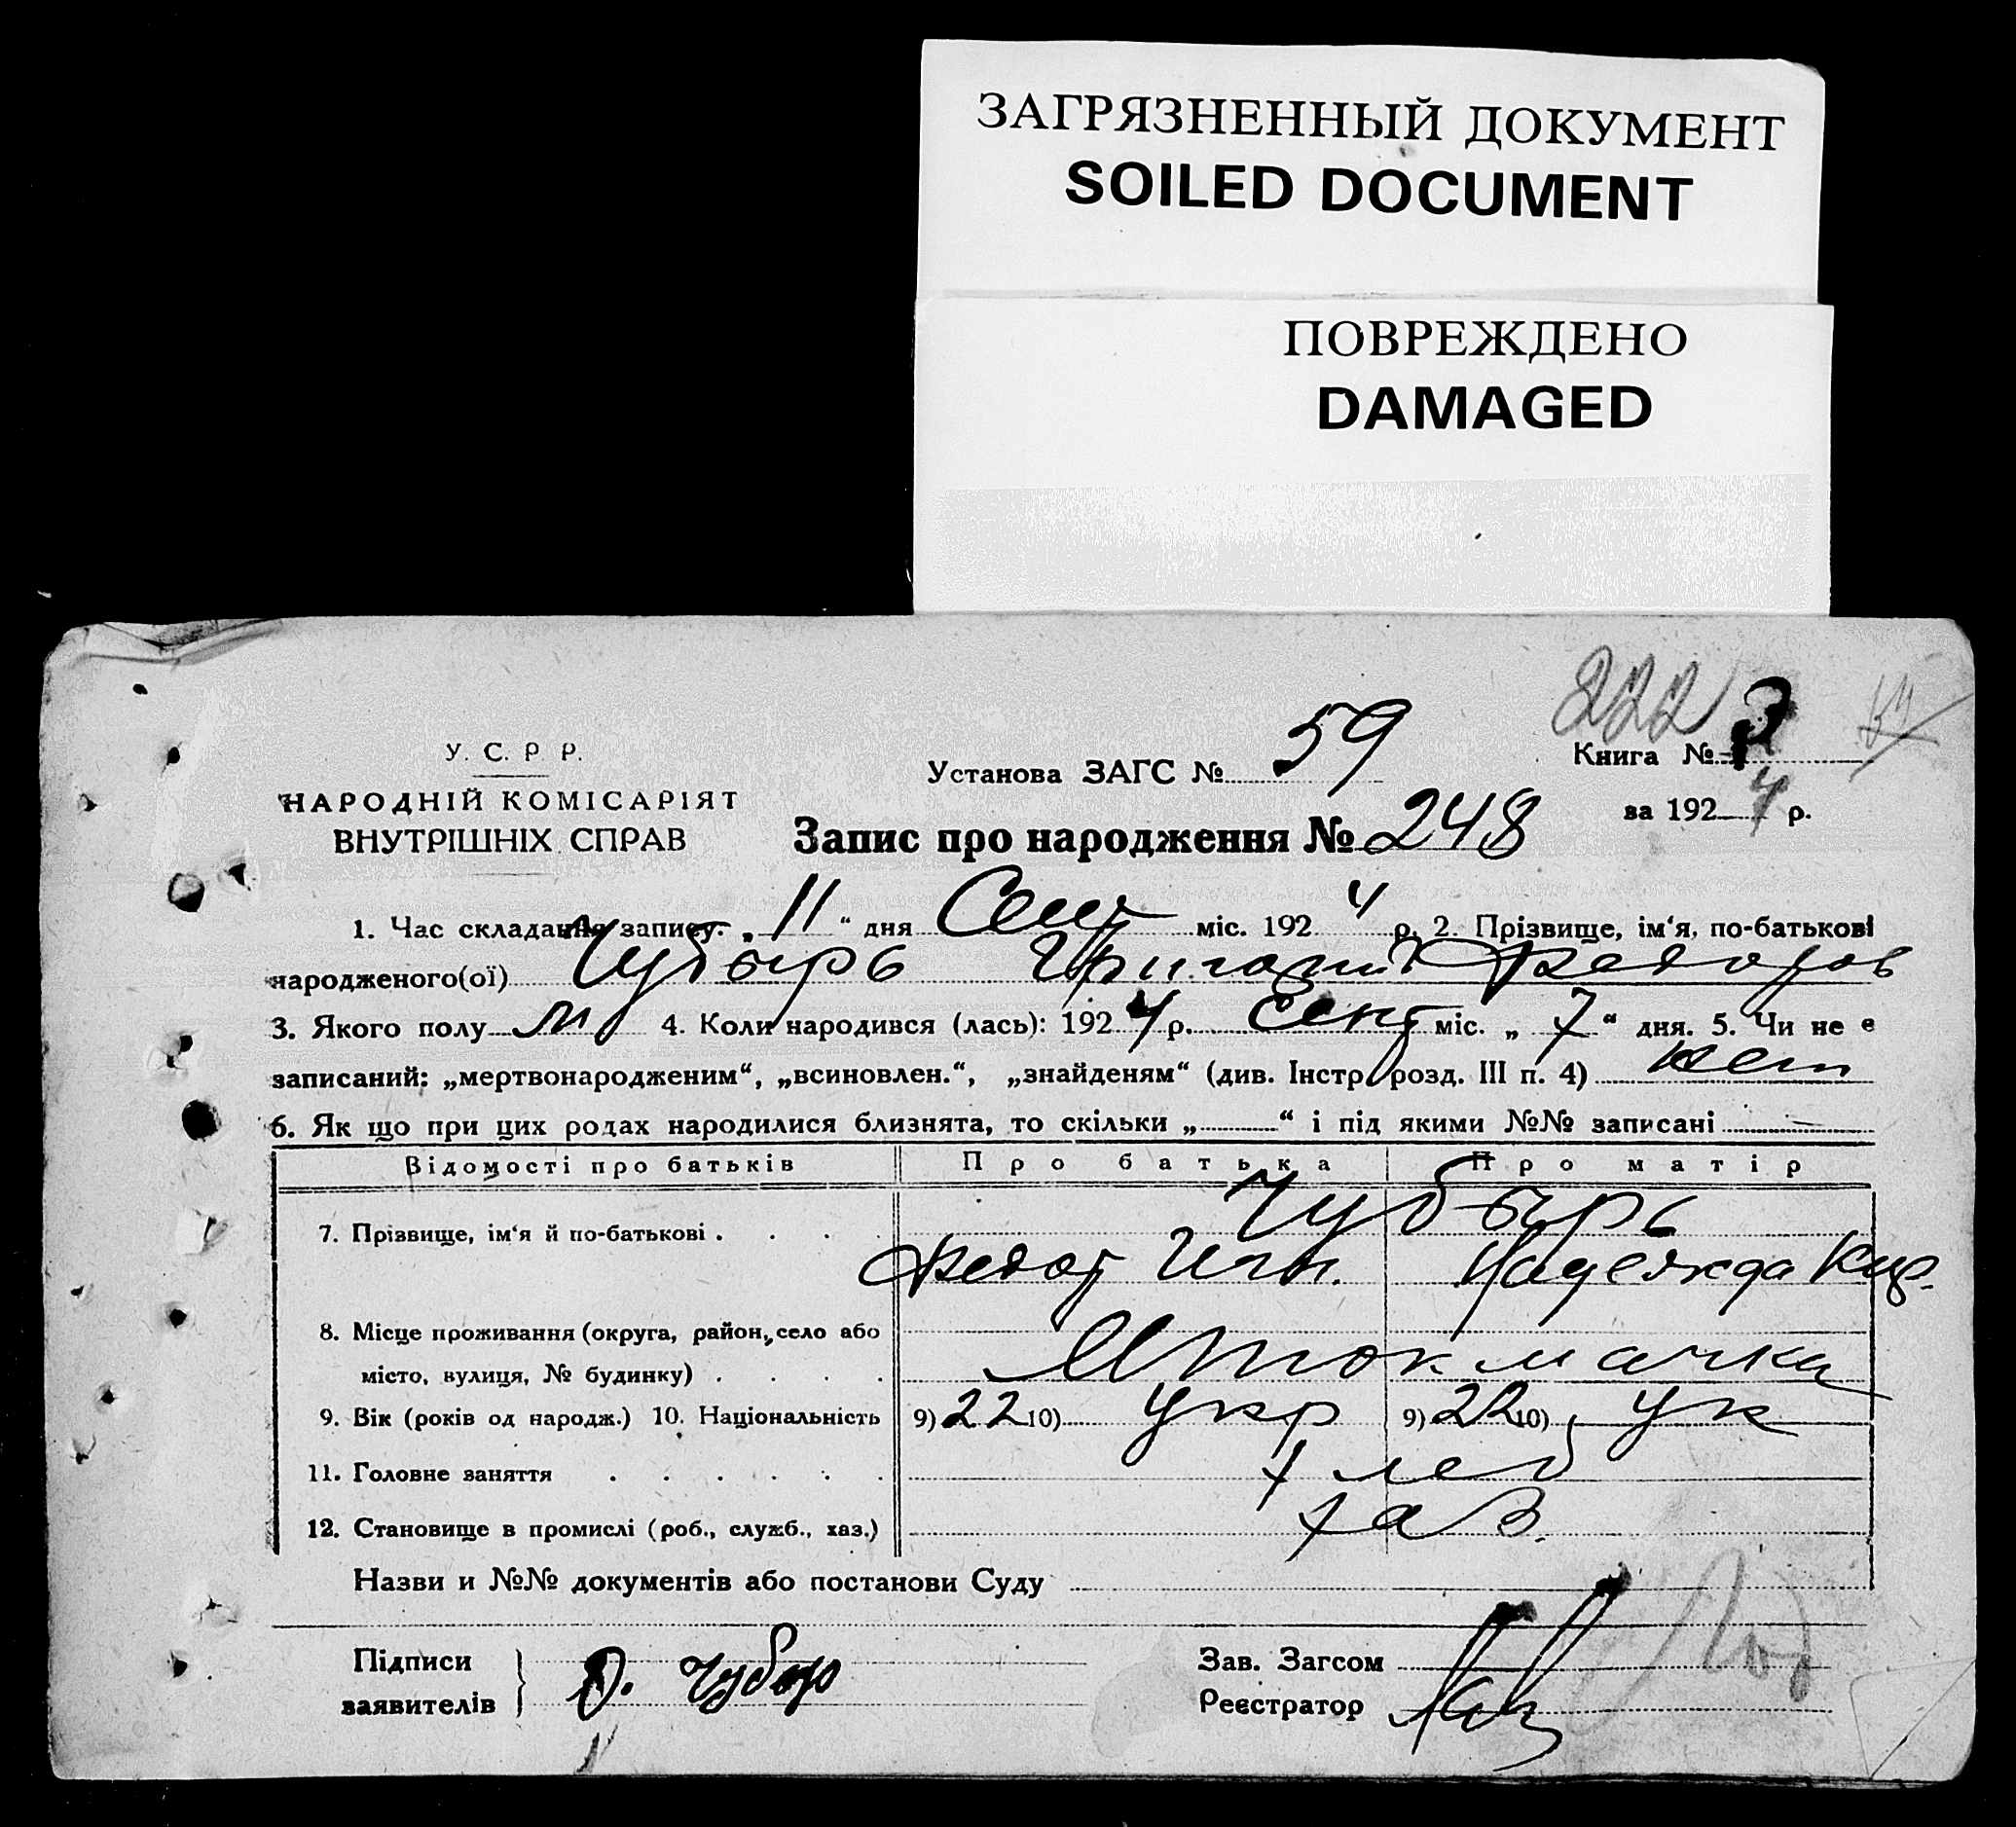 ЗАГРЯЗНЕННЫЙ ДОКУМЕНТ
SOILED DOCUMENT
ПОВРЕЖДЕНО
DAMAGED
222
У. С. Р Р.
НАРОДНІЙ КОМІСАРІЯТ
ВНУТРІШНІХ СПРАВ
Установа ЗАГС № 59
Книга №
за 1924 р.
Запис про народження № 248
1. Час складання запису: „11“ дня Сент міс. 1924 р. 2. Прізвище, ім'я, по-батькові
народженого(ої) Чубырь Григорий Федоров
3. Якого полу м 4. Коли народився (лась): 1924 р. Сент міс. „7“ дня. 5. Чи не є
записаний: „мертвонародженим“, „всиновлен.“, „знайденям“ (див. Інстр. розд. III п. 4) нет
6. Як що при цих родах народилися близнята, то скільки „ “ і під якими №№ записані —
Відомості про батьків Про батька Про матір
7. Прізвище, ім'я й по-батькові . . . . Чубырь
Федор Игн. Надежда Кир.
8. Місце проживання (округа, район, село або
місто, вулиця, № будинку) . . . . Токмачка
9. Вік (років од народж.) 10. Національність 9) 22 10) Укр 9) 22 10) Ук
11. Головне заняття . . . . . . хлеб
12. Становище в промислі (роб., служб., хаз.) хаз.
Назви и №№ документів або постанови Суду
Підписи
заявителів
Ф. Чубор
Зав. Загсом
Реєстратор